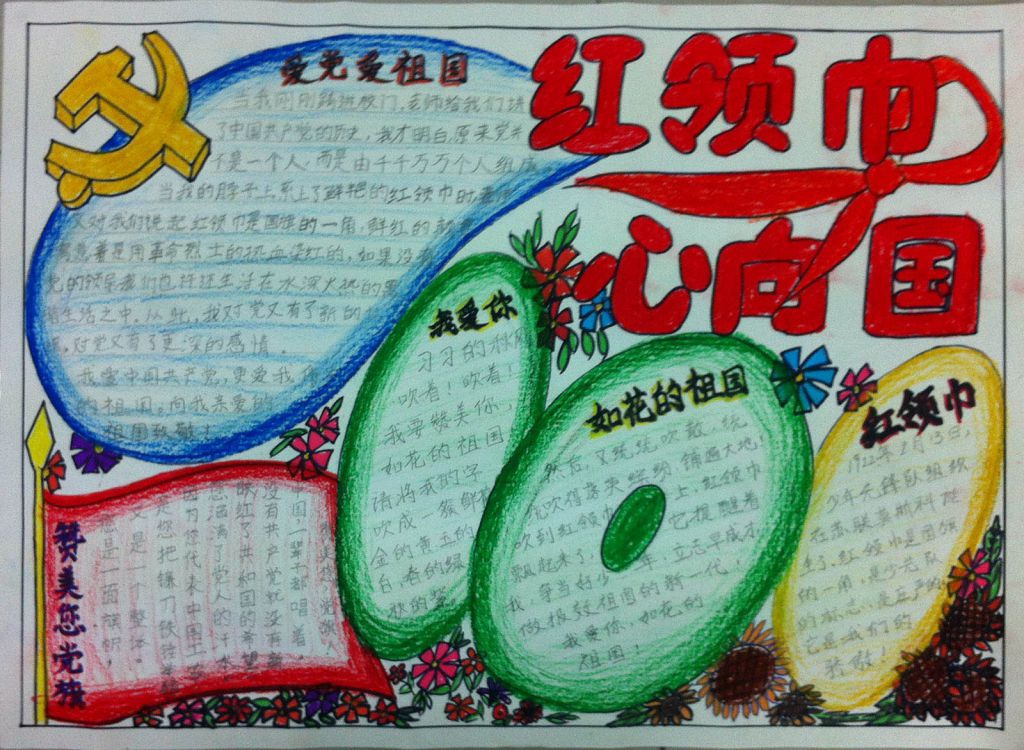 红领巾
心向国
爱党爱祖国
当我刚刚踏进校门,老师给我们讲
了中国共产党的历史,我才明白,原来党并
不是一个人,而是由千千万万个人组成
当我的脖子上系上了鲜艳的红领巾时
又对我们说起红领巾是国旗的一角,鲜红的
意着是用革命烈士的热血染红的,如果没有
党的领导我们也许还生活在水深火热的黑
暗生活之中.从此,我对党又有了新的
,对党又有了更深的感情.
我爱中国共产党,更爱我
的祖国.向我亲爱的
祖国致敬!
我爱你
习习的秋风
吹着!吹着!
我要赞美你,
如花的祖国
请将我的字
吹成一簇
金的黄玉的
白,春的绿
秋的
如花的祖国
然后,又统统吹散,统
吹得落英缤纷铺遍大地!
吹到红领巾上,红领巾
飘起来了,它提醒着
我,争当好少年,立志早成才
做报效祖国的新一代!
我爱你,如花的
祖国!
红领巾
1922年2月13日,
少年先锋队组织
在苏联莫斯科诞
生了.红领巾是国旗
的一角,是少先队
的标志,是庄严的
它是我们的
骄傲!
赞美您党旗
赞美您,党旗,
中国,一辈子都唱着,
没有共产党就没有新
映红了共和国的希望
您洒满了党人的
因为您代表中国工
是您把镰刀铁锤
又是一个整体.
您是一面旗帜,